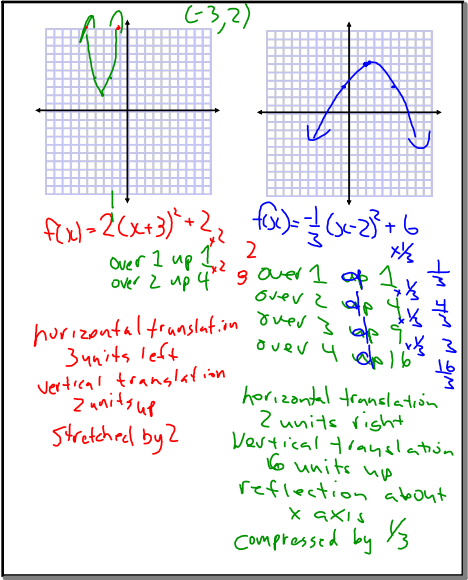 (-3,2)
f(x) = 2(x+3)² + 2
over 1 up 1 ×2 2
over 2 up 4 ×2 8
horizontal translation
3 units left
vertical translation
2 units up
Stretched by 2
f(x) = -1/3 (x-2)² + 6
×1/3
over 1 up 1 1/3
over 2 up 4 ×1/3 4/3
over 3 up 9 ×1/3 3
over 4 up 16 ×1/3 16/3
horizontal translation
2 units right
Vertical translation
6 units up
reflection about
x axis
compressed by 1/3